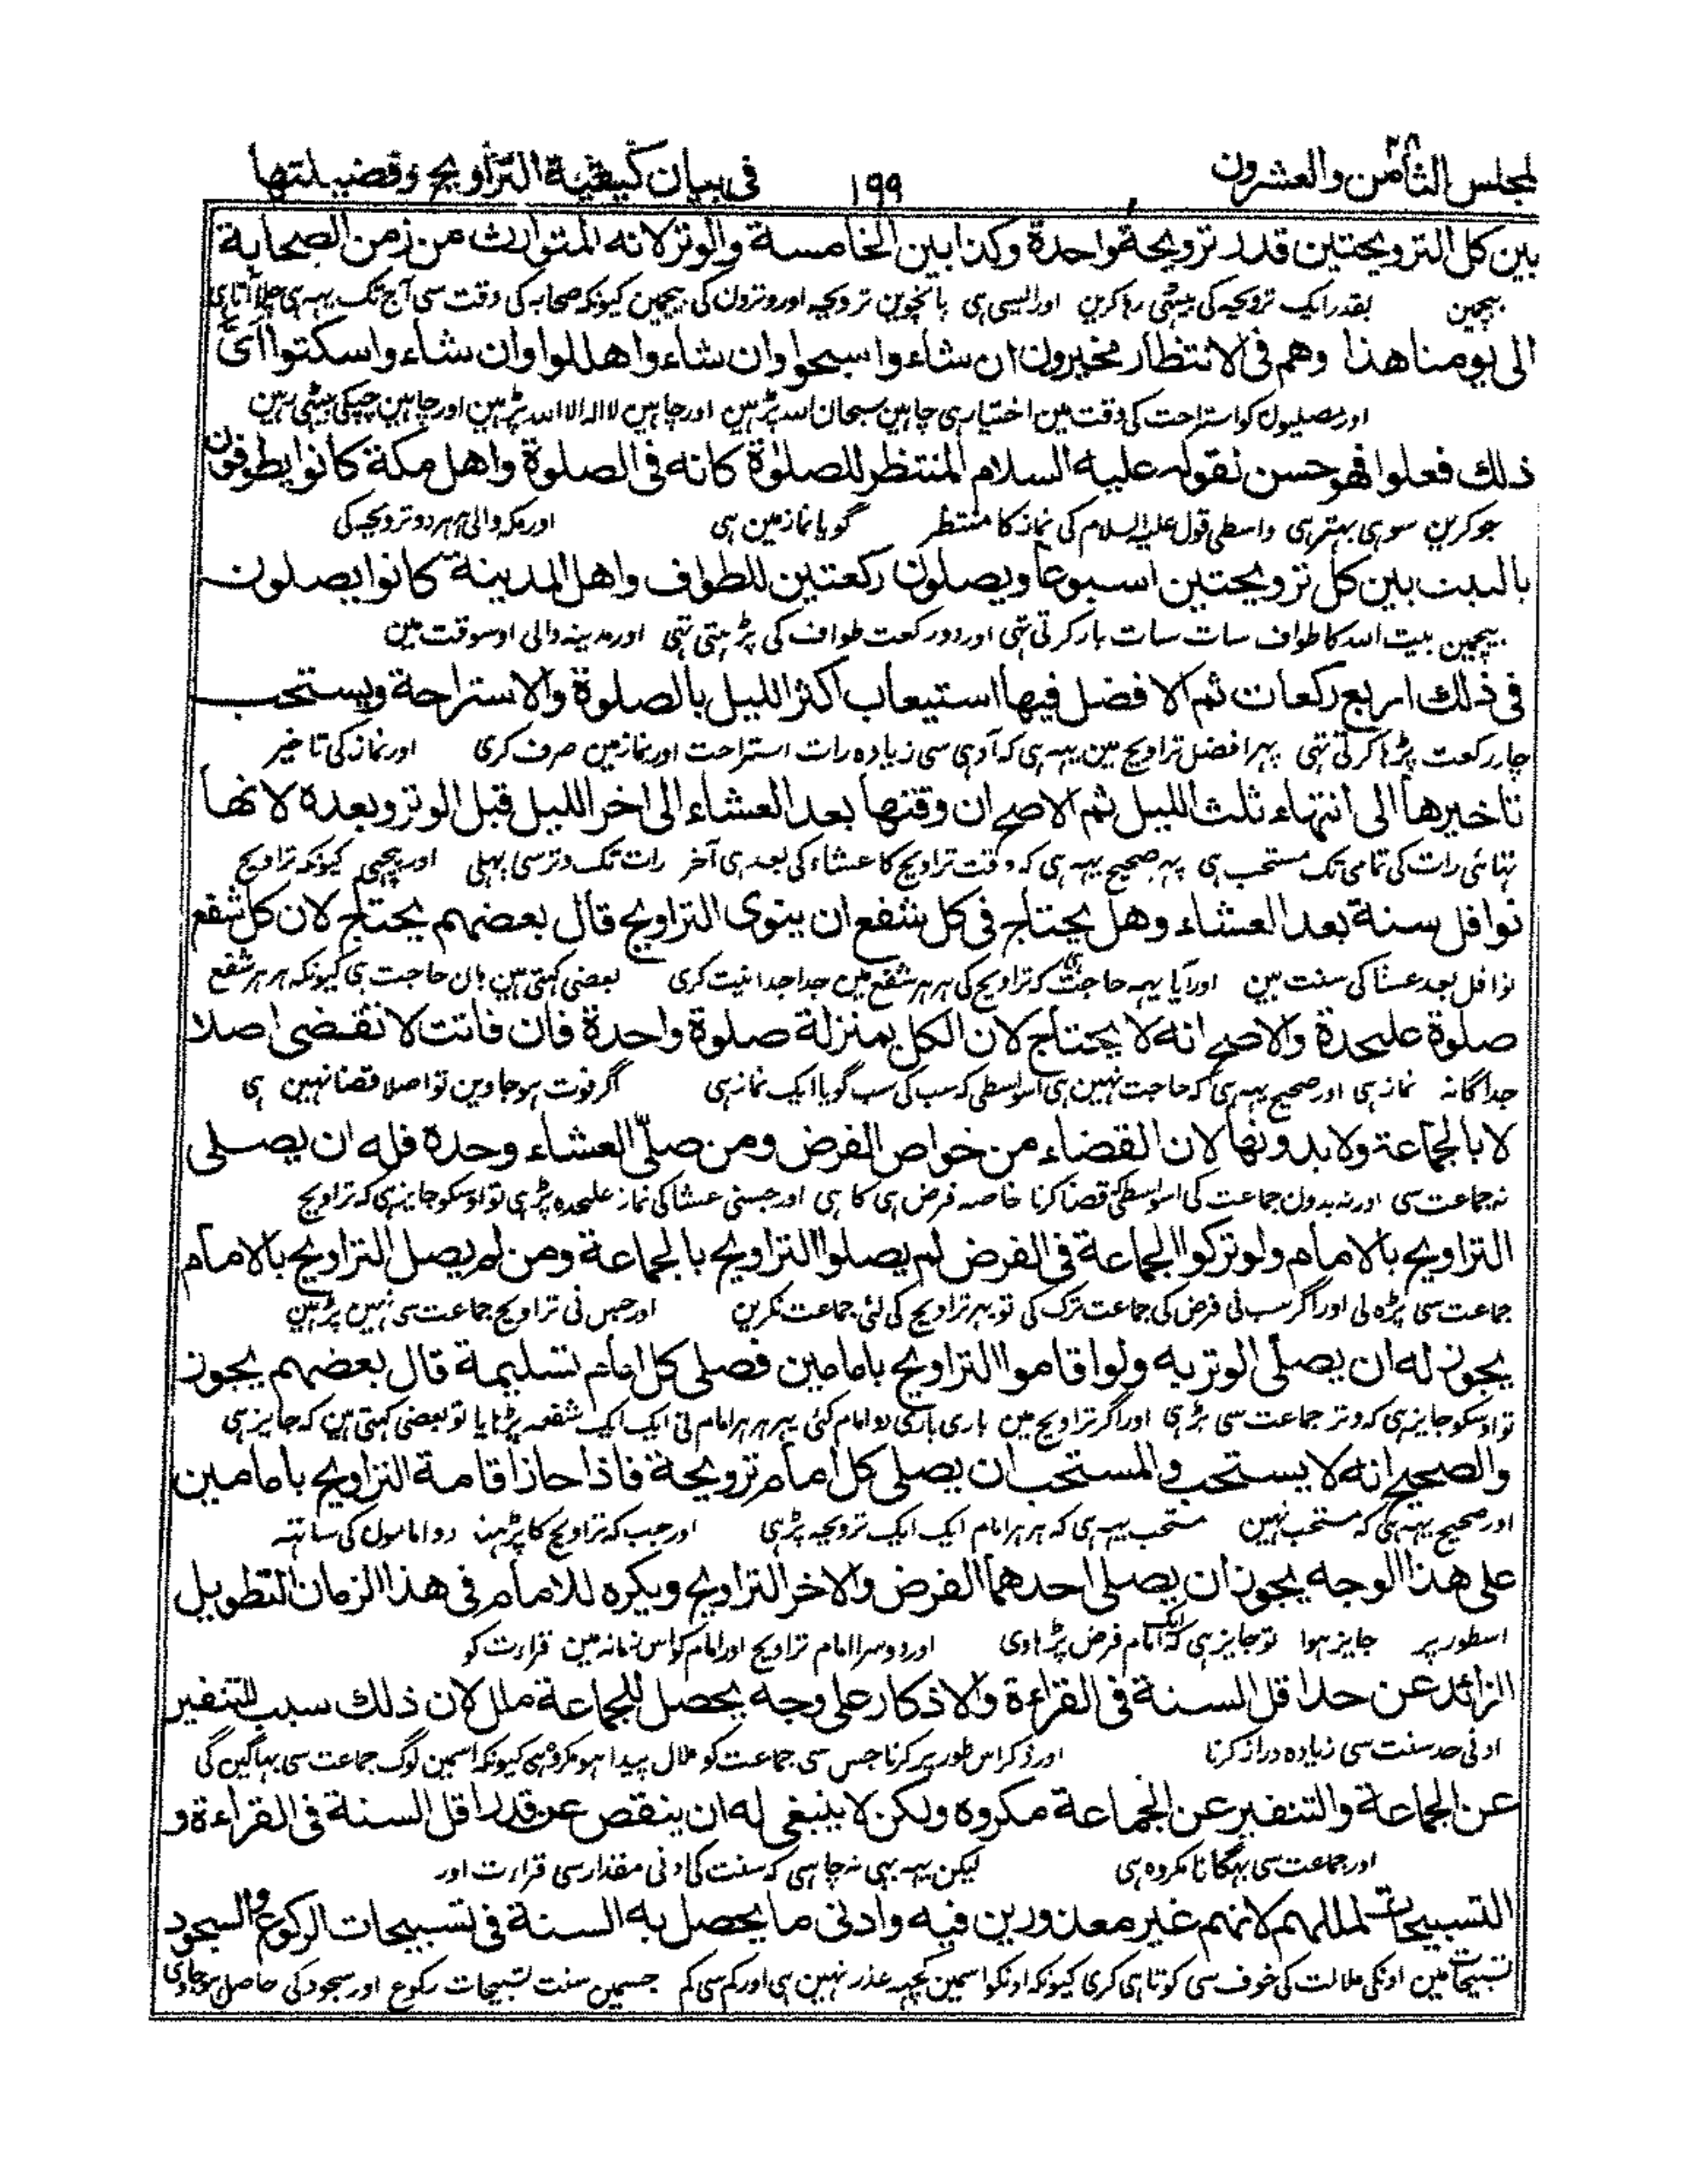 لمجلس الثامن والعشرون ٢٨
١٩٩
فی بیان کیفیة التراویح وفضیلتها
بین کل الترویحتین قدر ترویحة واحدة وکذا بین الخامسة والوتر لانه المتوارث من زمن الصحابة
بیچمین بقدر ایک ترویحہ کی بیٹھی رہا کرین اور ایسی ہی پانچوین ترویحہ اور وترون کی بیچمین کیونکہ صحابہ کی وقت سی آج تک یہہ ہی چلا آتا ہی
الی یومنا هذا وهم فی الانتظار مخیرون ان شاء وا سبحوا وان شاء وا هللوا وان شاء وا سکتوا ای
اور مصلیون کو استراحت کی وقت مین اختیار ہی چاہین سبحان اللہ پڑہین اور چاہین لا الہ الا اللہ پڑہین اور چاہین چپکی بیٹھی رہین
ذلك فعلوا فهو حسن لقوله علیه السلام المنتظر للصلوٰة کانه فی الصلوة واهل مکة کانوا یطوفون
جو کرین سو ہی بہتر ہی واسطی قول علیہ السلام کی نماز کا منتظر گویا نماز مین ہی اور مکہ والی ہر دو ترویحہ کی
بالبیت بین کل ترویحتین اسبوعا ویصلون رکعتین للطواف واهل المدینة کانوا یصلون
بیچمین بیت اللہ کا طواف سات سات بار کرتی تہی اور دو رکعت طواف کی پڑہتی تہی اور مدینہ والی اوسوقت مین
فی ذلك اربع رکعات ثم الافضل فیها استیعاب اکثر اللیل بالصلوة والاستراحة ویستحب
چار رکعت پڑہا کرتی تہی پہر افضل تراویح مین یہہ ہی کہ آدہی سی زیادہ رات استراحت اور نماز مین صرف کری اور نماز کی تاخیر
تاخیرها الی انتهاء ثلث اللیل ثم الاصح ان وقتها بعد العشاء الی اخر اللیل قبل الوتر وبعده لانها
تہائی رات کی تمامی تک مستحب ہی پہر صحیح یہہ ہی کہ وقت تراویح کا عشاء کی بعد ہی آخر رات تک وتر سی پہلی اور پیچہی کیونکہ تراویح
نوافل سنة بعد العشاء وهل یحتاج فی کل شفع ان ینوی التراویح قال بعضهم یحتاج لان کل شفع
نوافل بعد عشا کی سنت ہین اور آیا یہہ حاجت ہی کہ تراویح کی ہر ہر شفع مین جدا جدا نیت کری بعضی کہتی ہین ہان حاجت ہی کیونکہ ہر ہر شفع
صلوة علیحدة والاصح انه لا یحتاج لان الکل بمنزلة صلوة واحدة فان فاتت لا تقضی اصلا
جداگانہ نماز ہی اور صحیح یہہ ہی کہ حاجت نہین ہی اسواسطی کہ سب کی سب گویا ایک نماز ہی اگر فوت ہو جاوین تو اصلا قضا نہین ہی
لا بالجماعة ولا بدونها لان القضاء من خواص الفرض ومن صلّی العشاء وحده فله ان یصلی
نہ جماعت سی اور نہ بدون جماعت کی اسواسطی کہ قضا کرنا خاصہ فرض ہی کا ہی اور جسنی عشا کی نماز علیحدہ پڑہی تو اوسکو جایز ہی کہ تراویح
التراویح بالامام ولو ترکوا الجماعة فی الفرض لم یصلوا التراویح بالجماعة ومن لم یصل التراویح بالامام
جماعت سی پڑہ لی اور اگر سب نی فرض کی جماعت ترک کی تو پہر تراویح کی لئی جماعت نکرین اور جس نی تراویح جماعت سی نہین پڑہین
یجوز له ان یصلی الوتر به ولو اقاموا التراویح بامامین فصلی کل امام تسلیمة قال بعضهم یجوز
تو اوسکو جایز ہی کہ وتر جماعت سی پڑہی اور اگر تراویح مین باری باری دو امام کئی پہر ہر ہر امام نی ایک ایک شفعہ پڑہایا تو بعضی کہتی ہین کہ جایز ہی
والصحیح انه لا یستحب والمستحب ان یصلی کل امام ترویحة فاذا جاز اقامة التراویح بامامین
اور صحیح یہہ ہی کہ مستحب نہین مستحب یہہ ہی کہ ہر ہر امام ایک ایک ترویحہ پڑہی اور جب کہ تراویح کا پڑہنا دو امامون کی ساتہہ
علی هذا الوجه یجوز ان یصلی احدهما الفرض والاخر التراویح ویکره للامام فی هذا الزمان التطویل
اسطور پر جایز ہوا تو جایز ہی کہ ایک امام فرض پڑہاوی اور دوسرا امام تراویح اور امام کو اس زمانہ مین قراءت کو
الزائد عن حد اقل السنة فی القراءة والاذکار علی وجه یحصل للجماعة ملل لان ذلك سبب للتنفیر
ادنی حد سنت سی زیادہ دراز کرنا اور ذکر اس طور پر کرنا جس سی جماعت کو ملال پیدا ہو مکروہ ہی کیونکہ اسمین لوگ جماعت سی بہاگین گی
عن الجماعة والتنفیر عن الجماعة مکروه ولکن لا ینبغی له ان ینقص عن قدر اقل السنة فی القراءة و
اور جماعت سی بہگانا مکروہ ہی لیکن یہہ بہی نہ چاہی کہ سنت کی ادنی مقدار سی قراءت اور
التسبیحات لمللهم لانهم غیر معذورین فیه وادنی ما یحصل به السنة فی تسبیحات الرکوع والسجود
تسبیحات مین اونکی ملالت کی خوف سی کوتاہی کری کیونکہ اونکو اسمین کچہہ عذر نہین ہی اور کم سی کم جسمین سنت تسبیحات رکوع اور سجود کی حاصل ہو جاوی